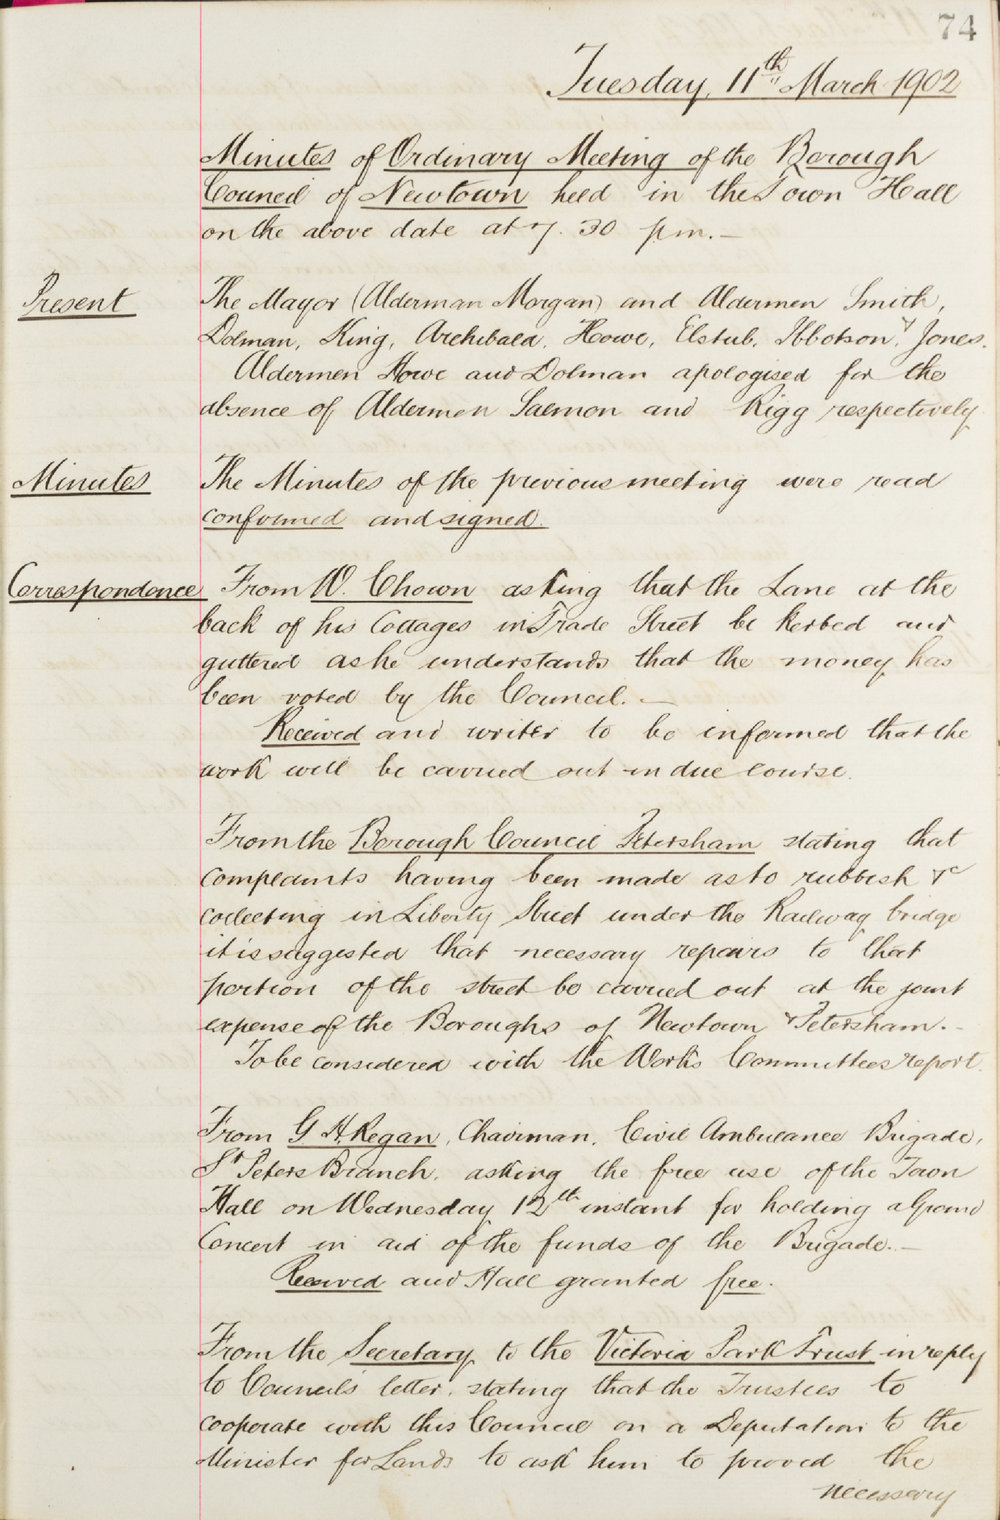 74
Tuesday, 11th March 1902
Minutes of Ordinary Meeting of the Borough
Council of Newtown held in the Town Hall
on the above date at 7.30 pm.—
Present
The Mayor (Alderman Morgan) and Aldermen Smith,
Dolman, King, Archibald, Howe, Elstub, Ibbotson, & Jones.
Aldermen Howe and Dolman apologised for the
absence of Aldermen Salmon and Rigg respectively
Minutes
The Minutes of the previous meeting were read
confirmed and signed.
Correspondence
From W. Chown asking that the Lane at the
back of his Cottages in Trade Street be kerbed and
guttered as he understands that the money has
been voted by the Council.—
Received and writer to be informed that the
work will be carried out in due course.
From the Borough Council Petersham stating that
complaints having been made as to rubbish &c
collecting in Liberty Street under the Railway bridge
it is suggested that necessary repairs to that
portion of the street be carried out at the joint
expense of the Boroughs of Newtown & Petersham.—
To be considered with the Works Committees report.
From G H Regan, Chairman, Civil Ambulance Brigade,
St Peters Branch, asking the free use of the Town
Hall on Wednesday 12th instant for holding a Grand
Concert in aid of the funds of the Brigade.—
Received and Hall granted free.
From the Secretary to the Victoria Park Trust in reply
to Council's letter, stating that the Trustees to
cooperate with this Council on a Deputation to the
Minister for Lands to ask him to proceed the
necessary